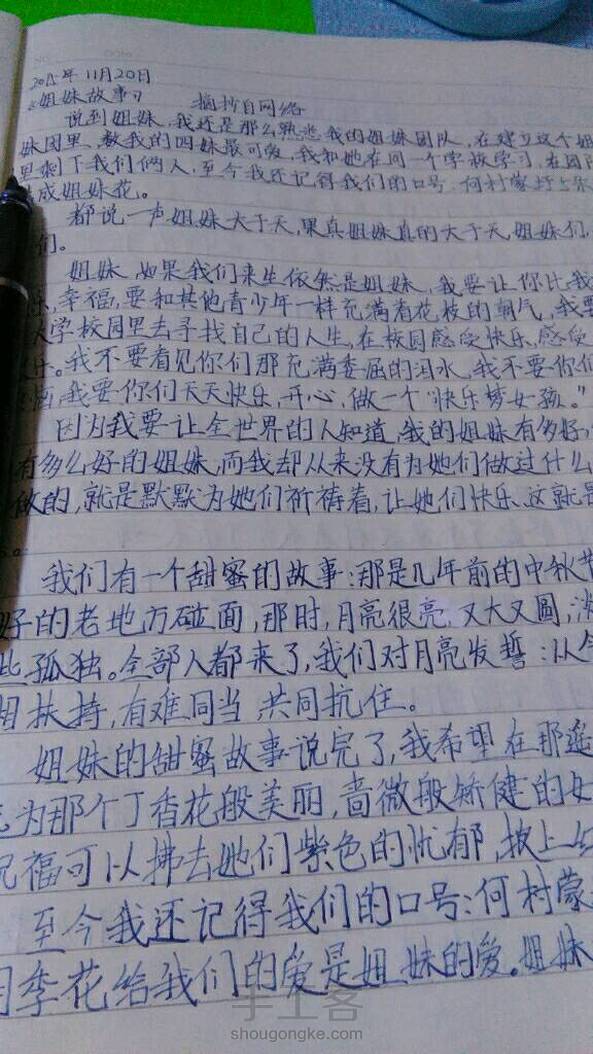 2015年11月20日
《姐妹故事》 摘抄自网络
说到姐妹,我还是那么熟悉我的姐妹团队,在建立这个姐
妹团里,数我的四妹最可爱,我和她在同一个学校学习,在团
里剩下我们俩人,至今我还记得我们的口号,何村蒙
成姐妹花。
都说一声姐妹大于天,果真姐妹真的大于天,姐妹们,
们。
姐妹,如果我们来生依然是姐妹,我要让你比我
乐,幸福,要和其他青少年一样充满着花枝的朝气,我要
大学校园里去寻找自己的人生,在校园感受快乐,感受
乐。我不要看见你们那充满委屈的泪水,我不要你们
恼,我要你们天天快乐,开心,做一个"快乐梦女孩。"
因为我要让全世界的人知道,我的姐妹有多好,
有多么好的姐妹,而我却从来没有为她们做过什么
做的,就是默默为她们祈祷着,让她们快乐,这就是
我们有一个甜蜜的故事:那是几年前的中秋节
好的老地方碰面,那时,月亮很亮,又大又圆,
些孤独。全部人都来了,我们对月亮发誓:从今
相扶持,有难同当,共同抗住。
姐妹的甜蜜故事说完了,我希望在那遥
为那个丁香花般美丽,啬微般娇健的女
祝福可以拂去她们紫色的忧郁,披上
至今我还记得我们的口号:何村蒙
季花给我们的爱是姐妹的爱。姐妹
手工客
shougongke.com